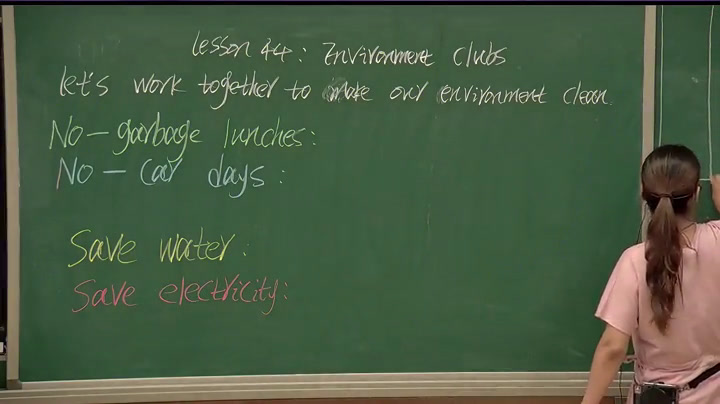 Lesson 44: Environment clubs
let's work together to make our environment clean.
No-garbage lunches:
No-car days:
Save water:
Save electricity: